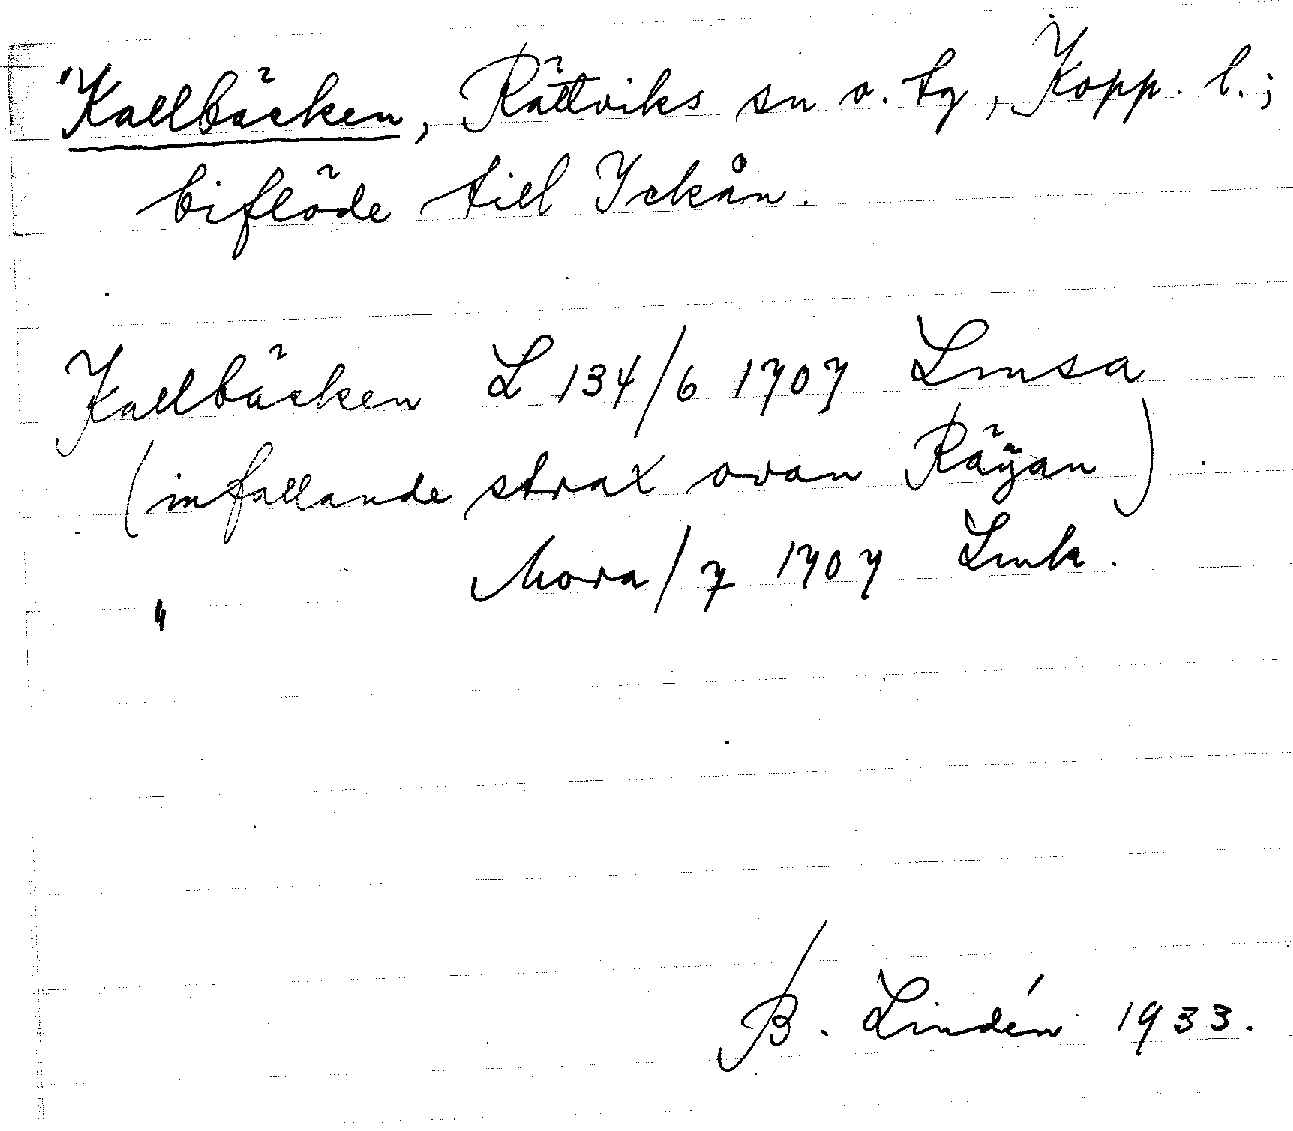 "Kallbäcken, Rättviks sn o. tg, Kopp. l.;
biflöde till Ickån.
Kallbäcken L 134/6 1707 Lmsa
(infallande strax ovan Räÿan)
" Mora/7 1707 Lmk.
B. Lindén 1933.